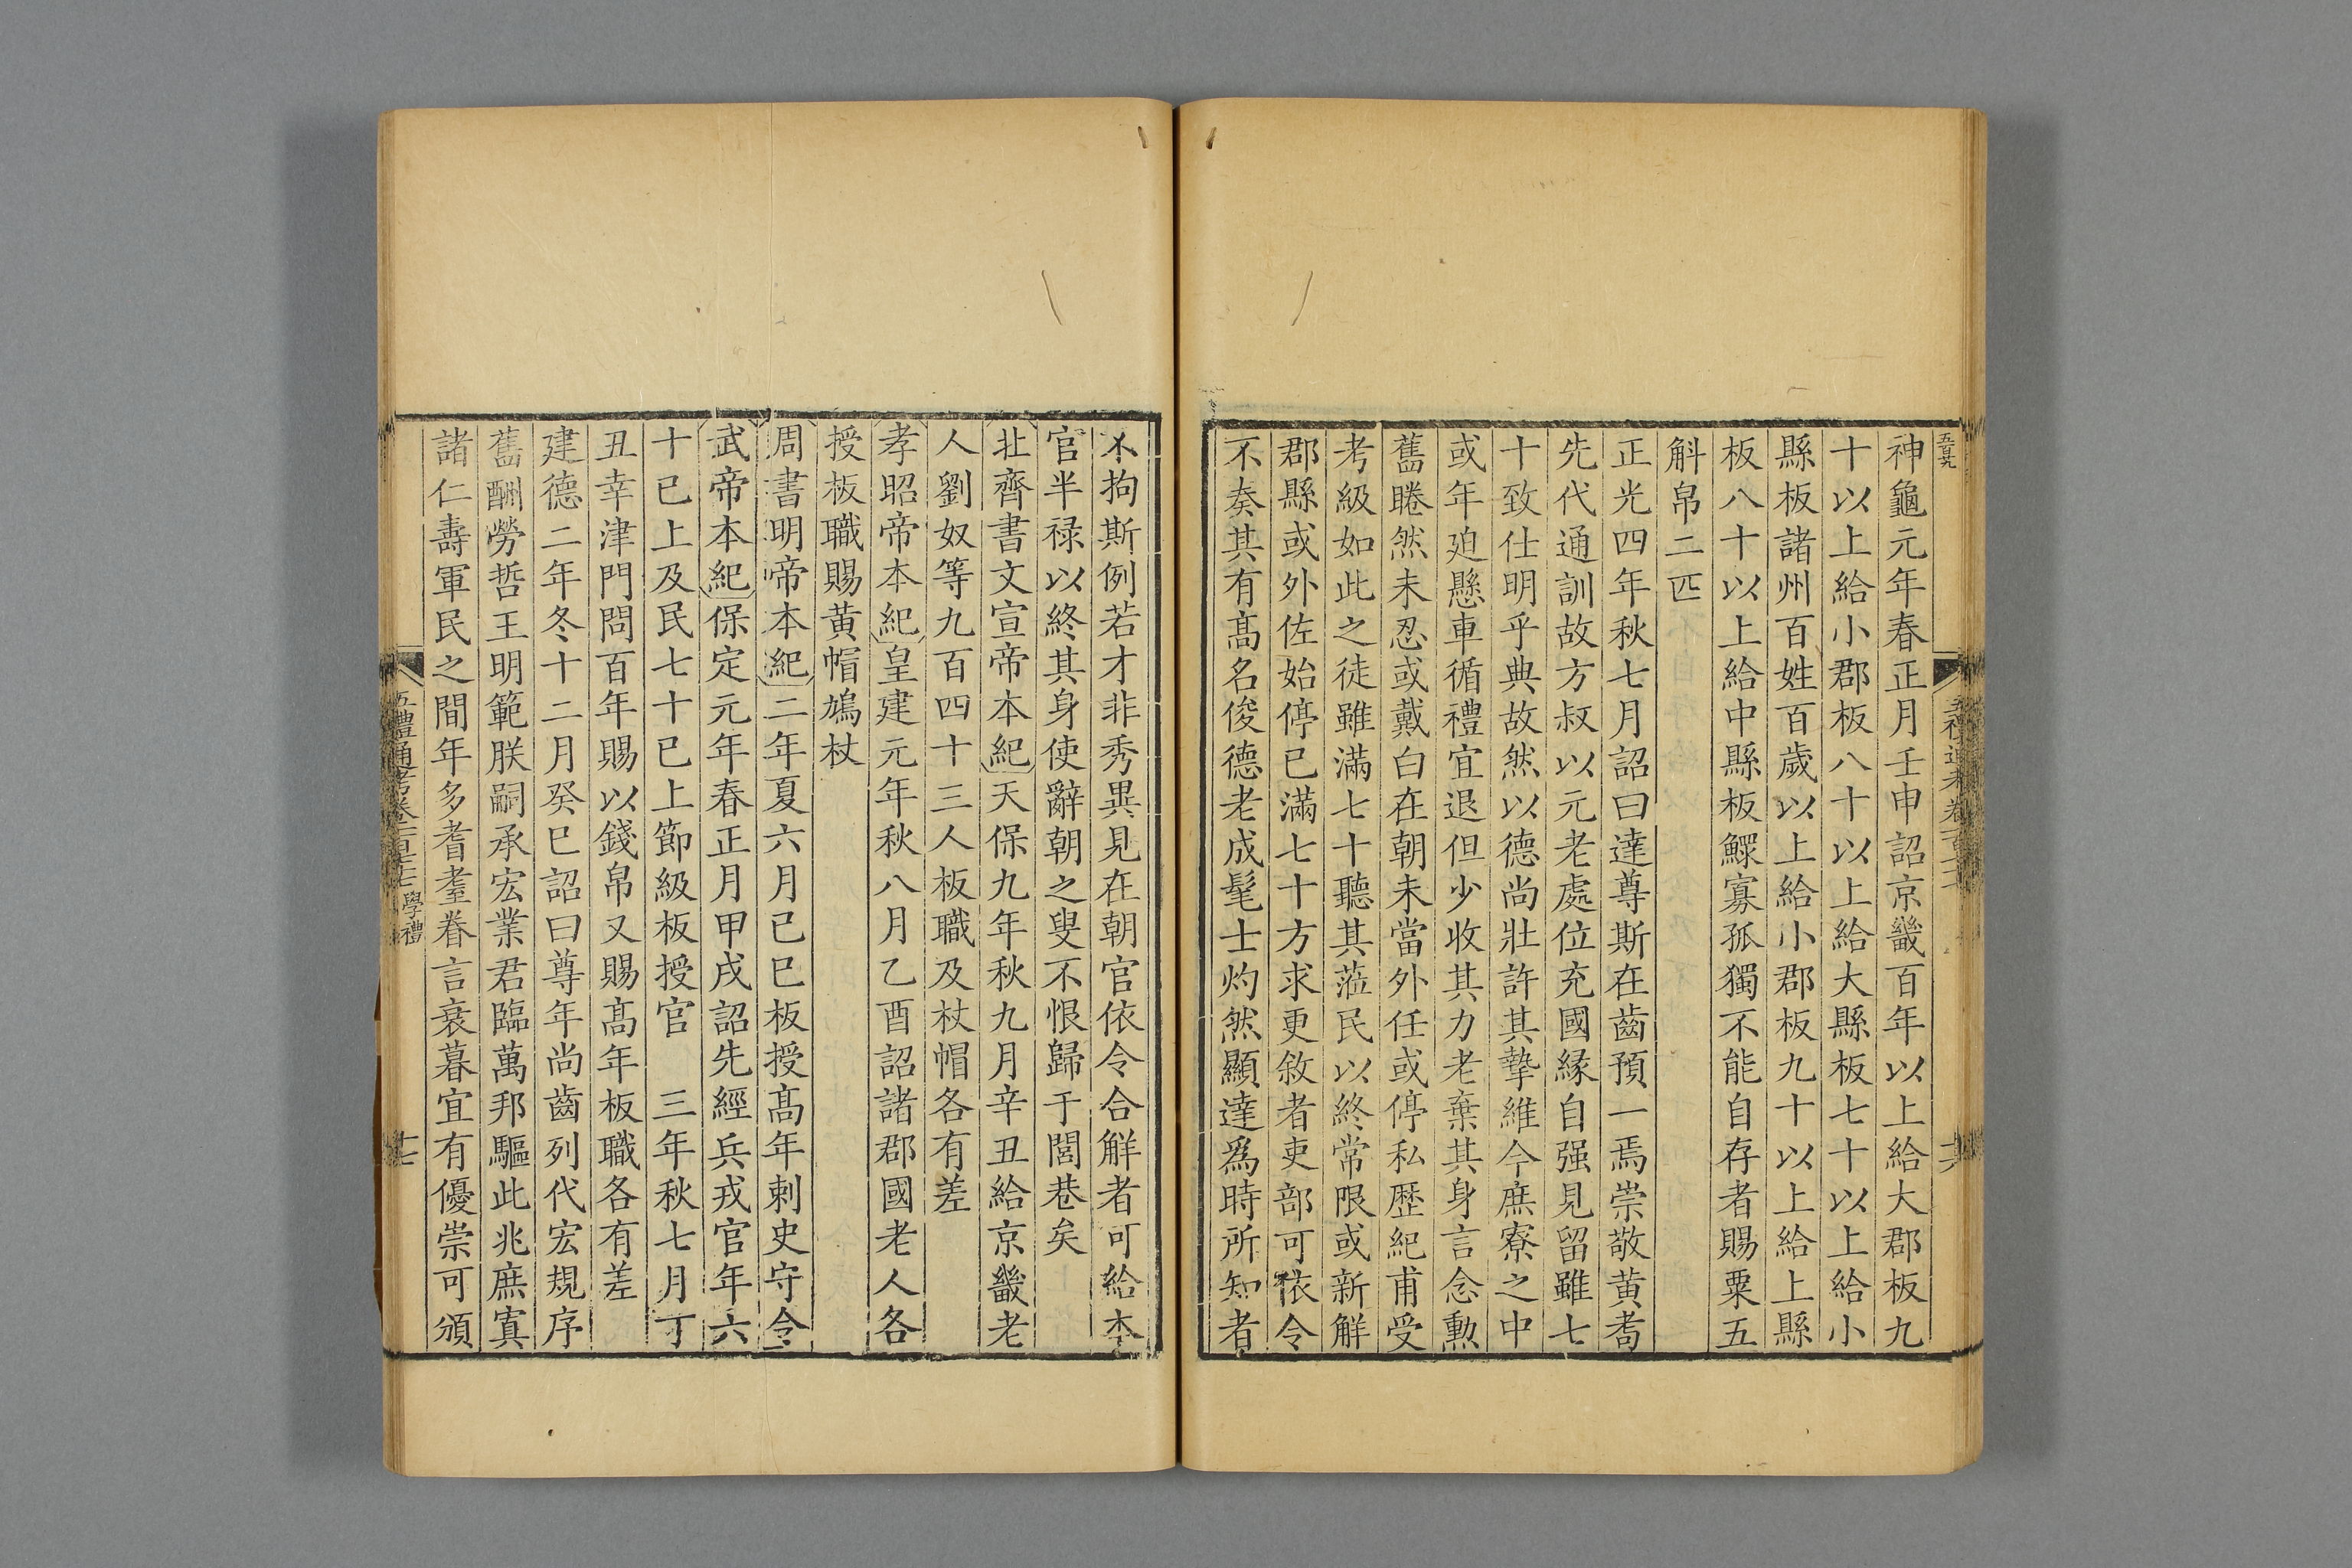 神龜元年春正月壬申詔京畿百年以上給大郡板九
十以上給小郡板八十以上給大縣板七十以上給小
縣板諸州百姓百歲以上給小郡板九十以上給上縣
板八十以上給中縣板鰥寡孤獨不能自存者賜粟五
斛帛二匹
正光四年秋七月詔曰達尊斯在齒預一焉崇敬黄耇
先代通訓故方叔以元老處位充國緣自强見留雖七
十致仕明乎典故然以德尚壯許其摯維今庶寮之中
或年廹懸車循禮宜退但少收其力老棄其身言念勲
舊睠然未忍或戴白在朝未當外任或停私歷紀甫受
考級如此之徒雖滿七十聽其蒞民以終常限或新解
郡縣或外佐始停已滿七十方求更敘者吏部可依令
不奏其有髙名俊德老成髦士灼然顯達爲時所知者
不拘斯例若才非秀異見在朝官依令合解者可給本
官半禄以終其身使辭朝之叟不恨歸于閭巷矣
北齊書文宣帝本紀天保九年秋九月辛丑給京畿老
人劉奴等九百四十三人板職及杖帽各有差
孝昭帝本紀皇建元年秋八月乙酉詔諸郡國老人各
授板職賜黄帽鳩杖
周書明帝本紀二年夏六月己巳板授髙年刺史守令
武帝本紀保定元年春正月甲戌詔先經兵戎官年六
十已上及民七十已上節級板授官　三年秋七月丁
丑幸津門問百年賜以錢帛又賜髙年板職各有差
建德二年冬十二月癸巳詔曰尊年尚齒列代宏規序
舊酬勞哲王明範朕嗣承宏業君臨萬邦驅此兆庶寘
諸仁壽軍民之間年多耆耋眷言衰暮宜有優崇可頒
五禮通考卷一百七十七 學禮
十七